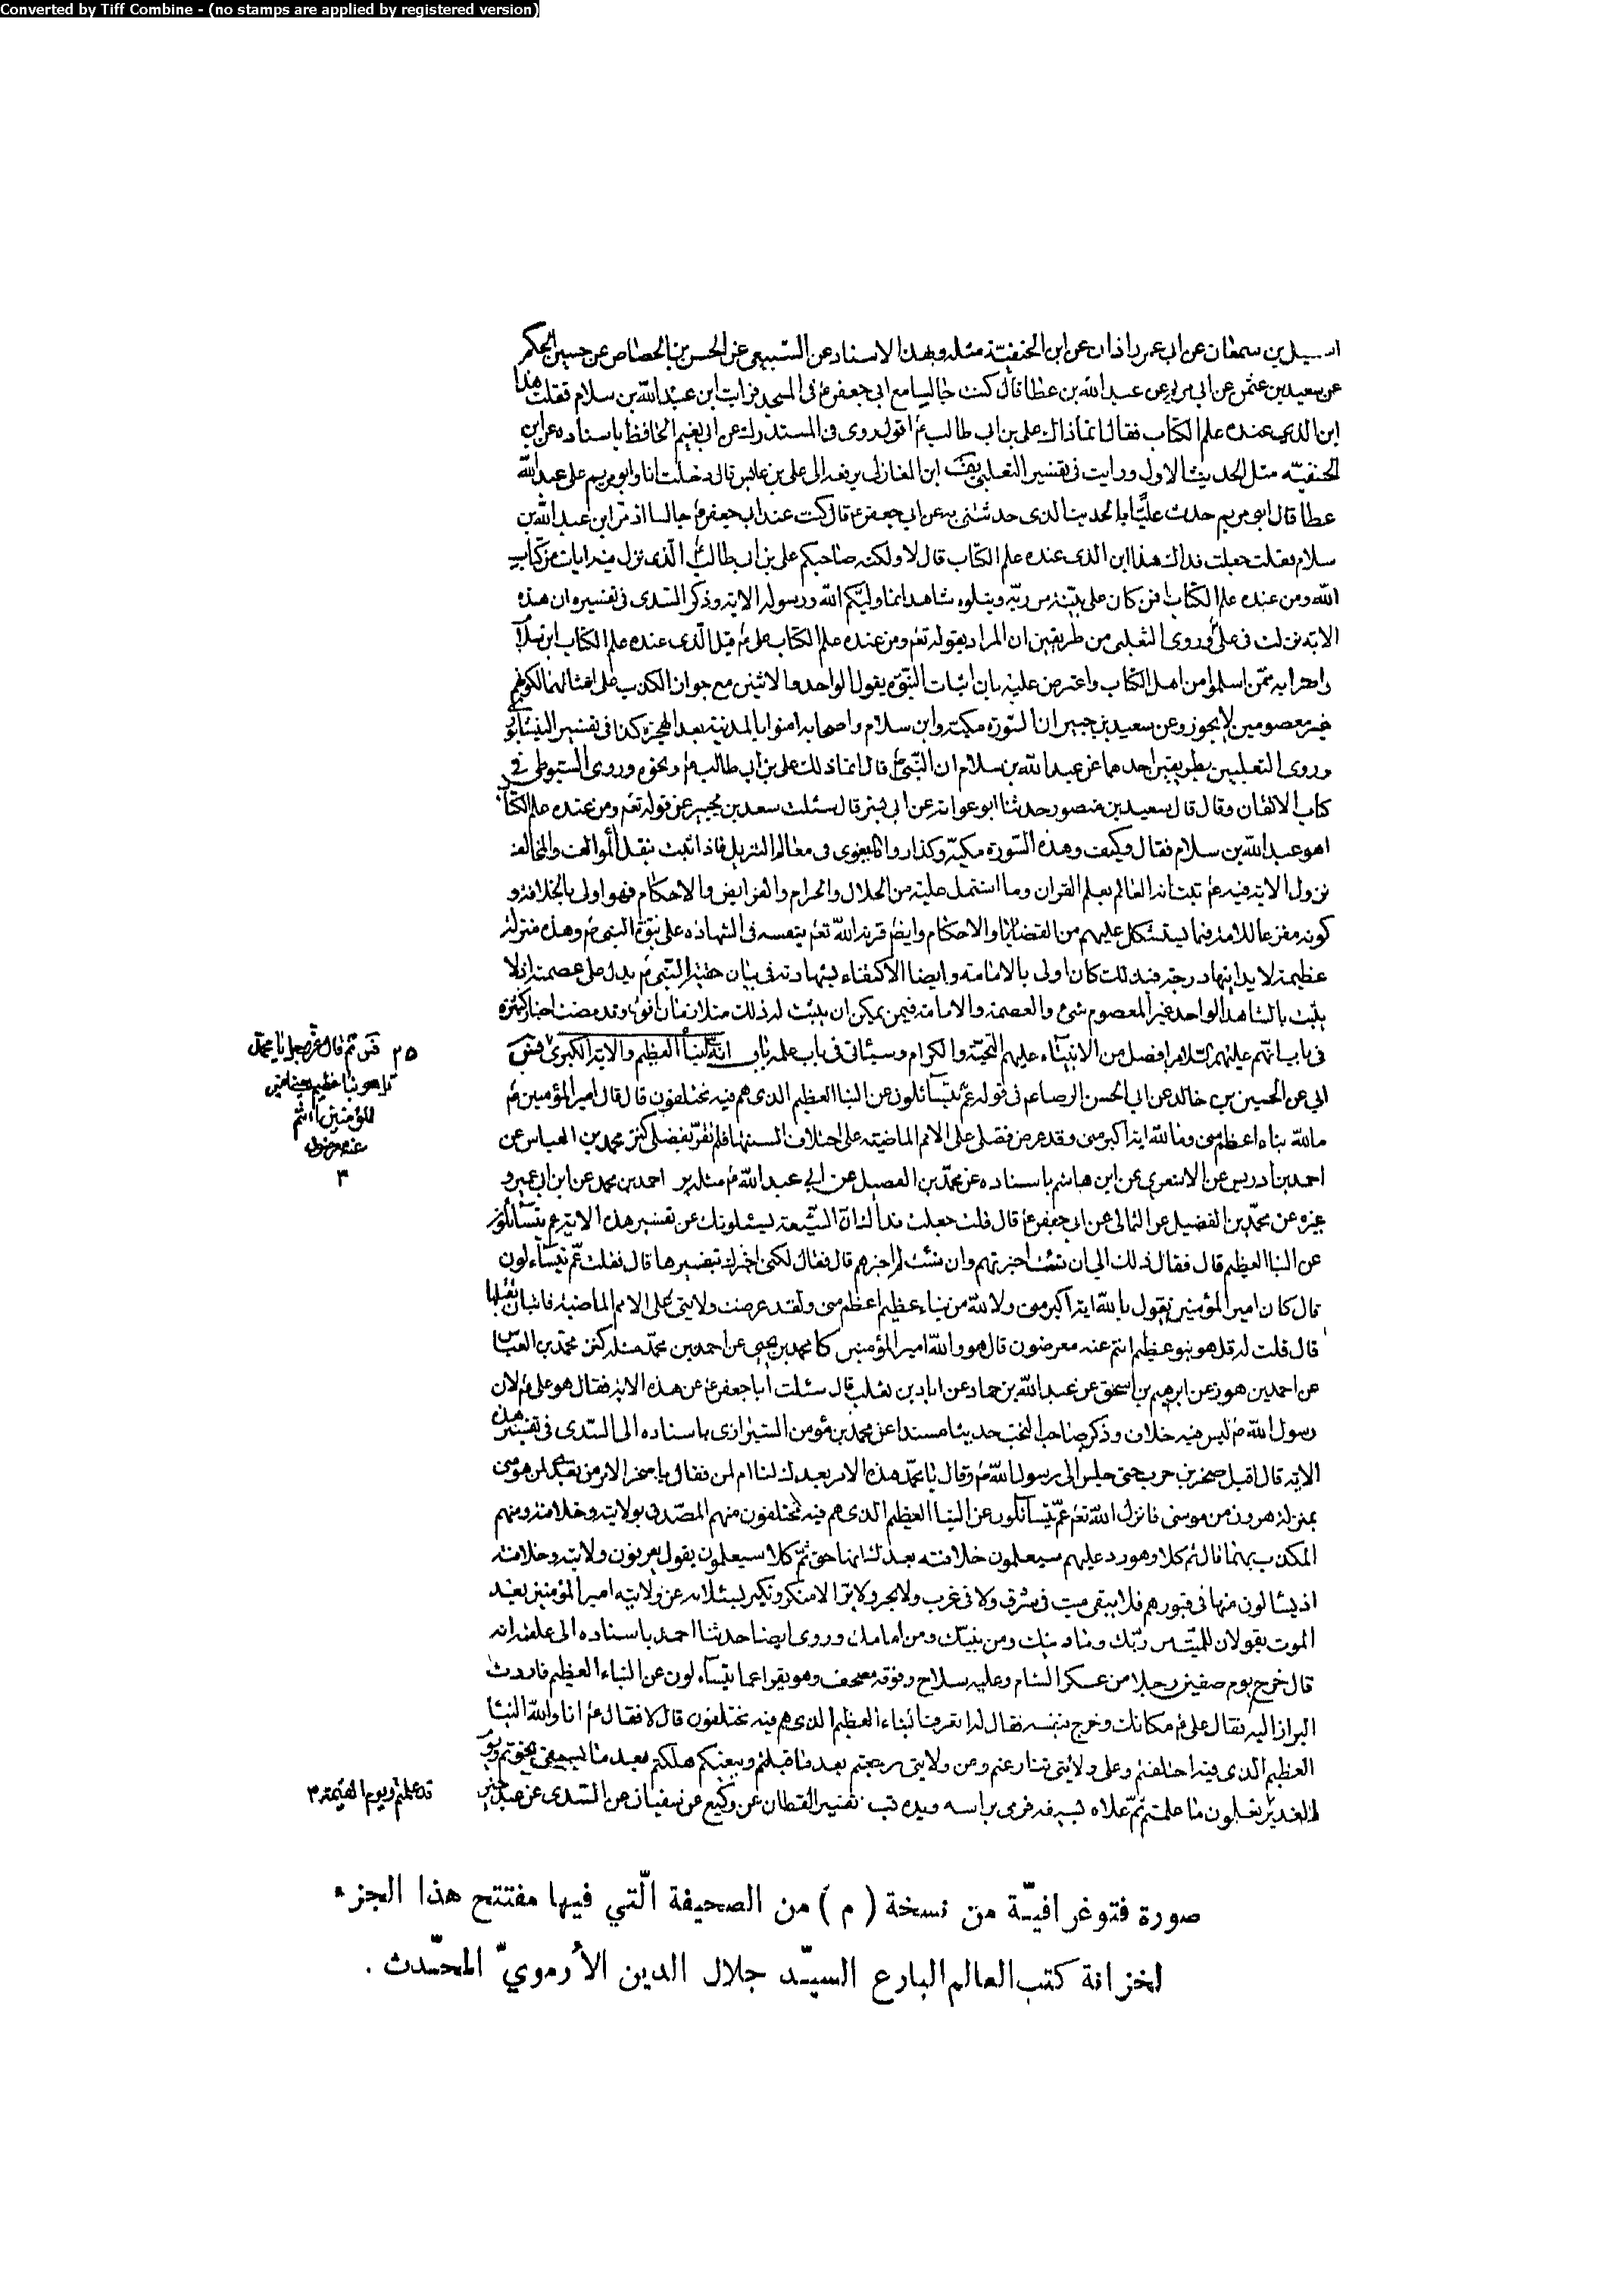 Converted by Tiff Combine - (no stamps are applied by registered version)
بن سمعان عن ابى عمر زاذان عن ابن الحنفيّة مثله وبهذا الاسناد عن السبيعى عن الحسن بن الجصاص عن حسين الحكم
عن سعيد بن عثمن عن ابى مريم عن عبد الله بن عطا قال كنت جالسا مع ابى جعفر ع فى المسجد فرايت ابن عبد الله بن سلام فقلت هذا
ابن الذى عنده علم الكتاب فقال انما ذاك على بن ابى طالب ع اقول روى فى المستدرك عن ابى نعيم الحافظ باسناده عن ابن
الحنفيّه مثل الحديث الاول ورايت فى تفسير الثعلبى ابن المغازلى يرفعه الى على بن عابس قال دخلت انا وابو مريم على عبد الله
عطا قال ابو مريم حدث عليًّا بالحديث الذى حدثتنى به عن ابى جعفر ع قال كنت عند ابى جعفر ع جالسا اذ مر ابن عبد الله بن
سلام فقلت جعلت فداك هذا ابن الذى عنده علم الكتاب قال لا ولكنه صاحبكم على بن ابى طالب ع الذى نزل فيه ايات من كتاب
الله ومن عنده علم الكتاب افمن كان على بيّنة من ربّه ويتلوه شاهد انما وليّكم الله ورسوله الاية وذكر السدى فى تفسيره ان هذه
الاية نزلت فى على وروى الثعلبى من طريقين ان المراد بقوله تعم ومن عنده علم الكتاب على ع قيل الّذى عنده علم الكتاب ابن سلام
ممّن اسلموا من اهل الكتاب واعترض عليه بان اثبات النبّوة بقول الواحد والاثنين مع جواز الكذب على امثالهما لكونهم
غير معصومين لا يجوز وعن سعيد بن جبير ان السّورة مكية وابن سلام واصحابه امنوا بالمدينة بعد الهجرة كذا فى تفسير النيشابورى
وروى الثعلبى بطريقين احدهما عن عبد الله بن سلام ان النّبى ص قال انما ذلك على بن ابى طالب ع ونحوه وروى السيوطى فى
كتاب الاتقان وقال قال سعيد بن منصور حدثنا ابو عوانة عن ابى بشر قال سئلت سعد بن جبير عن قوله تعم ومن عنده علم الكتاب
اهو عبد الله بن سلام فقال وكيف وهذه السّورة مكيّة وكذا رواه البغوى فى معالم التنزيل فاذا ثبت بنقل الموالف والمخالف
نزول الاية فيه ع ثبت انه العالم بعلم القران وما اشتمل عليه من الحلال والحرام والفرايض والاحكام فهو اولى بالخلافة و
كونه مفزعا للامة فيما يستشكل عليهم من القضايا والاحكام وايضً قرنه الله تعم بنفسه فى الشهادة على نبوّة النبى ص وهذه منزلة
عظيمة لا يدانيها درجة فبذلك كان اولى بالامامة وايضا الاكتفاء بشهادته فى بيان حقية النّبى ص يدل على عصمته اذ لا
يثبت بالشاهد الواحد غير المعصوم شئ والعصمة والامامة فيمن يمكن ان يثبت له ذلك متلازمان وقد مضت اخبار كثيرة
فى باب انّهم عليهم السّلام افضل من الانبياء عليهم التحيّة والكرام وسياتى فى باب علمه باب انه ع النبأ العظيم والاية الكبرى فس
ابى عن الحسين بن خالد عن ابى الحسن الرضا ع فى قوله عمّ يتسآئلون عن النبا العظيم الذى هم فيه مختلفون قال قال امير المؤمنين ع
ما لله نباء اعظم منى وما لله اية اكبر منى وقد عرض فضلى على الامم الماضية على اختلاف السنتها فلم تقرّ بفضلى كنز محمد بن العباس عن
احمد بن ادريس عن الاشعرى عن ابن هاشم باسناده عن محمّد بن الفضيل عن ابى عبد الله ع مثله ير احمد بن محمد عن ابن ابى عمير و
غيره عن محمّد بن الفضيل عن الثمالى عن ابى جعفر ع قال قلت جعلت فداك انّ الشّيعة يسئلونك عن تفسير هذه الاية عم يتسآئلون
عن النبا العظيم قال فقال ذلك الى ان شئت اخبرتهم وان شئت لم اخبرهم قال فقال لكنى اخبرك بتفسيرها قال فقلت عمّ يتساءلون
قال كان امير المؤمنين يقول ما لله اية اكبر منى ولا لله من نباء عظيم اعظم منى ولقد عرضت ولايتى على الامم الماضية فابت ان تقبلها
قال قلت له قل هو نبؤ عظيم انتم عنه معرضون قال هو والله امير المؤمنين كا محمد بن يحيى عن احمد بن محمّد مثله كنز محمد بن العباس
عن احمد بن هوذة عن ابرهيم بن اسحق عن عبد الله بن حماد عن ابان بن تغلب قال سئلت أبا جعفر ع عن هذه الاية فقال هو على ع لان
رسول الله ص ليس فيه خلاف وذكر صاحب النخب حديثا مسندا عن محمد بن مؤمن الشيرازى باسناده الى السّدى فى تفسير هذه
الاية قال اقبل صخر بن حرب حتى جلس الى رسول الله ص وقال يا محمّد هذا الامر بعدك لنا ام لمن فقال يا صخر الامر من بعدى لمن هو منى
بمنزلة هرون من موسى فانزل الله تعم عمّ يتسآئلون عن النبا العظيم الذى هم فيه مختلفون منهم المصدّق بولايته وخلافته ومنهم
المكذب بهما قال ثم كلا وهو رد عليهم سيعلمون خلافته بعدك انها حق ثمّ كلا سيعلمون يقول يعرفون ولايته وخلافته
اذ يسالون عنها فى قبورهم فلا يبقى ميت فى شرق ولا فى غرب ولا بحر ولا برّ الا منكر ونكير يسئلانه عن ولاية امير المؤمنين بعد
الموت يقولان للميّت من ربّك وما دينك ومن نبيّك ومن امامك وروى ايضا حدثنا احمد باسناده الى علقمة انه
قال خرج يوم صفين رجلا من عسكر الشام وعليه سلاح وفوقه مصحف وهو يقرا عما يتسآءلون عن النباء العظيم فاردت
البراز اليه فقال على ع مكانك وخرج بنفسه فقال له اتعرف النباء العظيم الذى هم فيه مختلفون قال لا فقال ع انا والله النبا
العظيم الذى فيه اختلفتم وعلى ولايتى تنازعتم وعن ولايتى رجعتم بعد ما قبلتم وببغيكم هلكتم بعد ما بسيفى نجوتم ويوم
الغدير تعلمون ما علمتم ثمّ علاه بسيفه فرمى براسه ويده قب تفسير القطان عن وكيع عن سفيان عن السّدى عن عبد خير
٢٥ فس ثم قال عزّ وجل يا محمّد
قل هو نبا عظيم يعنى امير
المؤمنين ع انتم
عنه معرضون
٣
قد علمتم ويوم القيمة ٣
صورة فتوغرافيّة من نسخة ( م ) من الصحيفة الّتي فيها مفتتح هذا الجزء
لخزانة كتب العالم البارع السيّد جلال الدين الأرمويّ المحدّث .